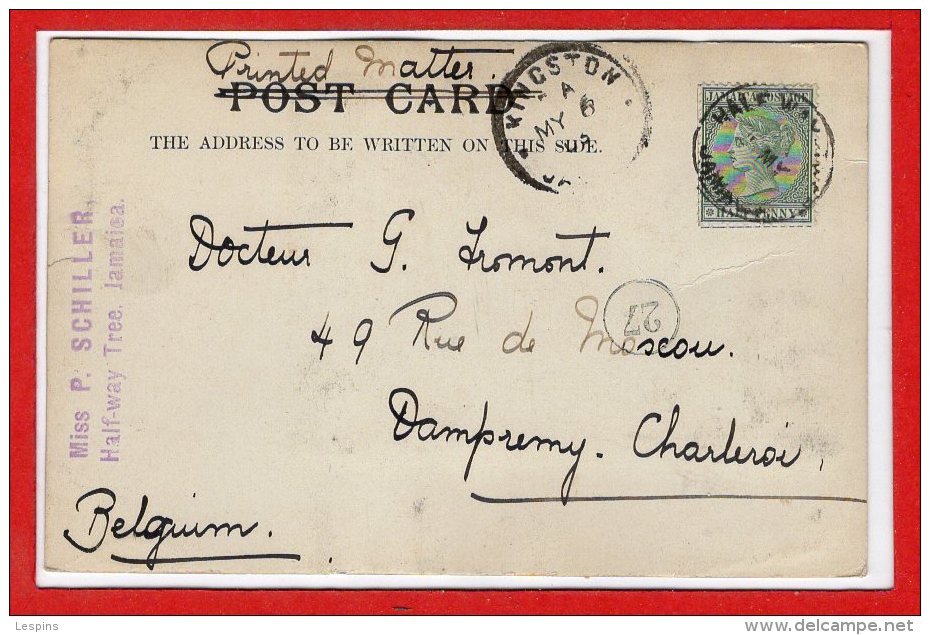 Printed Matter.
POST CARD
THE ADDRESS TO BE WRITTEN ON THIS SIDE.
KINGSTON
A
MY 6
JAMAICA POSTAGE
HALF PENNY
HALF WAY
MY
Miss P. SCHILLER,
Half-way Tree, Jamaica.
Docteur G. Fromont.
27
49 Rue de Moscou.
Dampremy. Charleroi,
Belgium.
Lespins
www.delcampe.net